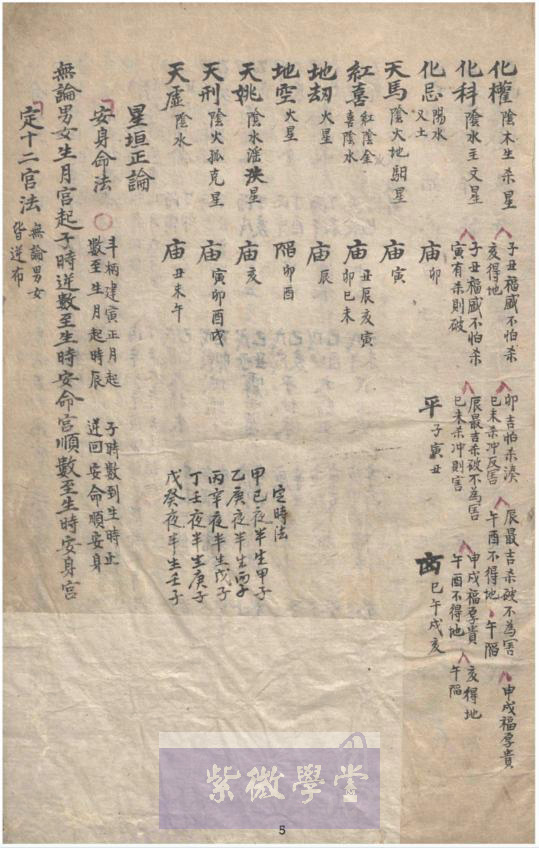 化權 陰木生杀星 子丑福威不怕杀 亥得地 卯吉怕杀湊 巳未杀冲反害 辰最吉杀破不為害 午酉不得地 午陷 申戌福厚貴
化科 陰水主文星 子丑福威不怕杀 寅有杀則破 辰最吉杀破不為害 巳未杀冲則害 申戌福厚貴 午酉不得地 亥得地 午陷
化忌 陽水 又土 庙 卯 平 子寅丑 陷 巳午戌亥
天馬 陰火地駟星 庙 寅
紅喜 紅陰金 喜陰水 庙 丑辰亥寅 卯巳未
地劫 火星 庙 辰
地空 火星 陷 卯酉
天姚 陰水滛泆星 庙 亥
天刑 陰火孤克星 庙 寅卯酉戌
天虛 陰水 庙 丑未午
定時法
甲巳夜半生甲子
乙庚夜半生丙子
丙辛夜半生戊子
丁壬夜半生庚子
戊癸夜半生壬子
星垣正論
安身命法 ○ 斗柄建寅正月起 數至生月起時辰 子時數到生時止 逆回安命順安身
無論男女生月宫起子時逆數至生時安命宫順數至生時安身宫
定十二宫法 無論男女 皆逆布
紫微學堂
5